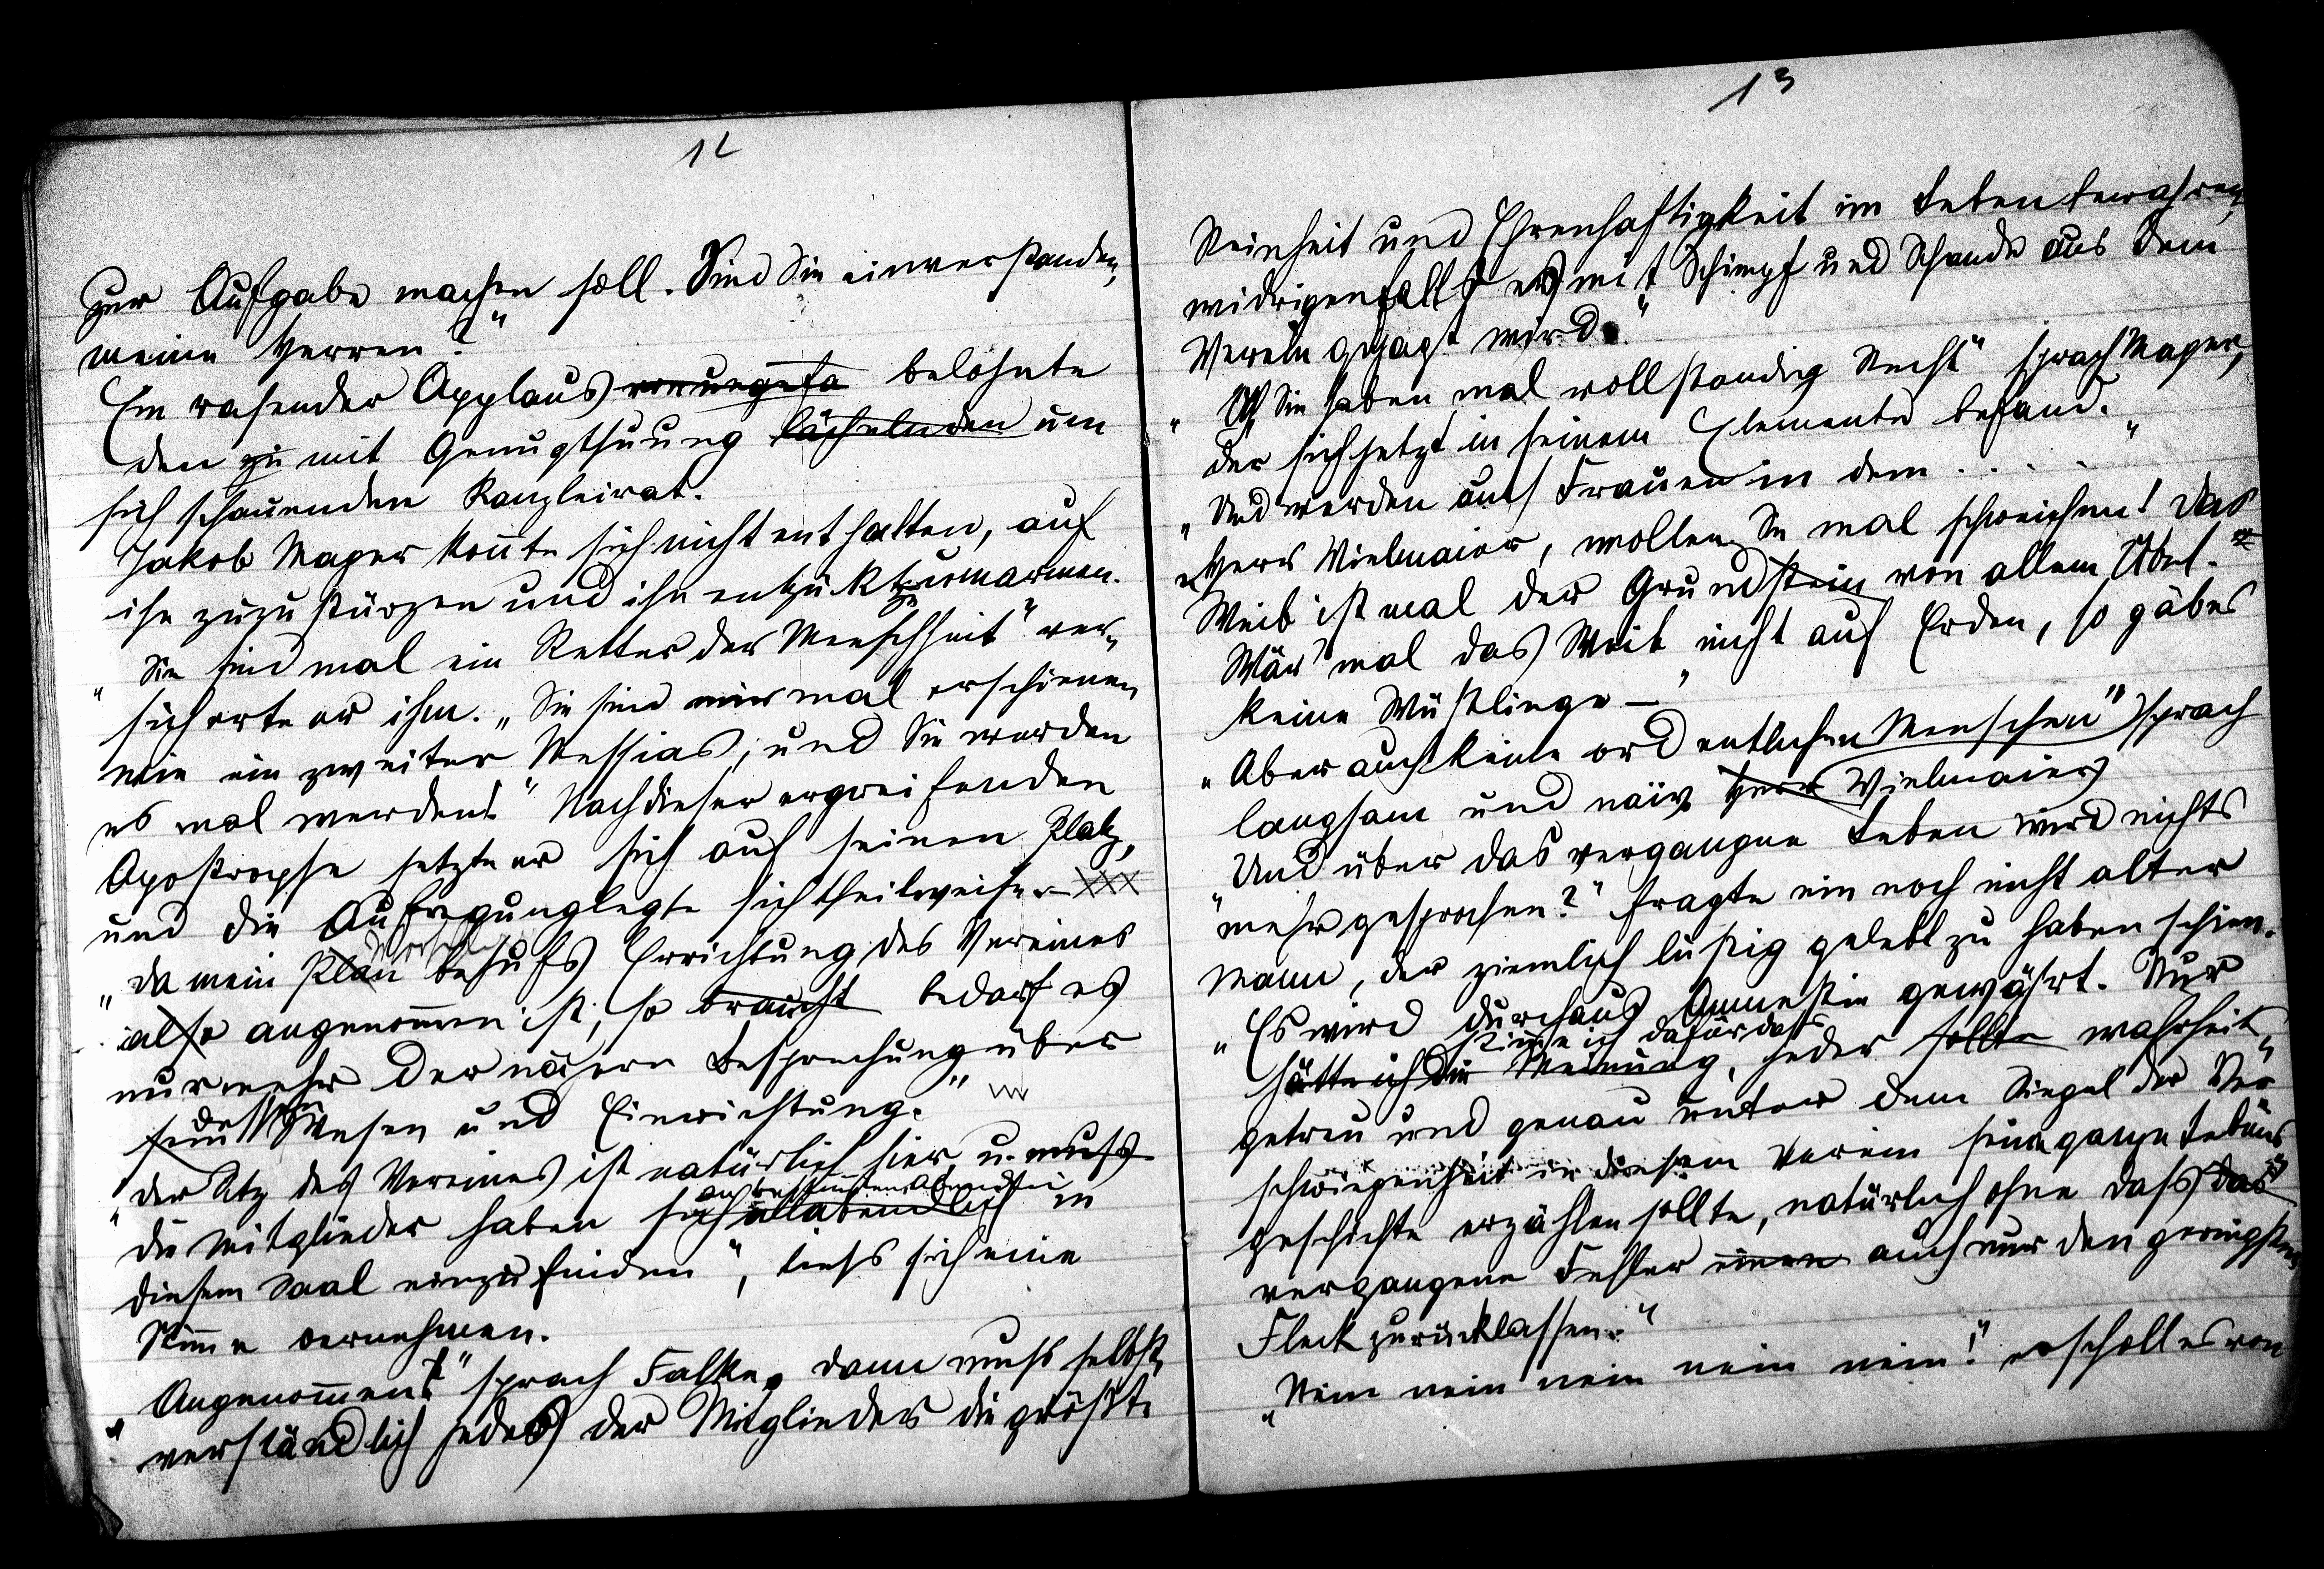 12
zur Aufgabe machen soll. Sind Sie einverstanden,
meine Herren?"
Ein rasender Applaus belohnte
den zu mit Genugthuung lächelnden um
sich schauenden Kanzleirat.
Jakob Mayer konnte sich nicht enthalten, auf
ihn zuzustürzen und ihn entzükt zu umarmen.
"Sie sind mal ein Retter der Menschheit" ver-
sicherte er ihm. „Sie sind mir mal erschienen
wie ein zweiter Messias, und Sie werden
es mal werden!" Nach dieser ergreifenden
Apostrophe setzte er sich auf seinen Platz,
und die Aufregung legte sich theilweise. XXX
"Da mein Plan Vorschlag behufs Errichtung des Vereines
also angenommen ist, so braucht bedarf es
nur mehr der nähern Besprechung über
sein Wesen und Einrichtung."
"Der Sitz des Vereines ist natürlich hier, u. muß
die Mitglieder haben sich allabendlich an bestimmten Abenden in
diesem Saal einzufinden", ließ sich eine
Stimme vernehmen.
"Angenommen!" sprach Falke, dann muß selbst-
verständlich jedes der Mitglieder die größte
13
Reinheit und Ehrenhaftigkeit im Leben bewahren,
widrigenfalls es mit Schimpf und Schande aus dem
Verein gejagt wird."
" Sie haben mal vollständig Recht" sprach Mayer,
der sich jetzt in seinem Elemente befand.
"Und werden auch Frauen in dem . . . . "
"Herr Vielmaier, wollen Sie mal schweigen! Das
Weib ist mal der Grundstein von allem Übel.
Wär' mal das Weib nicht auf Erden, so gäb es
keine Wüstlinge —"
"Aber auch keine ordentlichen Menschen" sprach
langsam und naiv Herr Vielmaier
"Und über das vergangne Leben wird nichts
mehr gesprochen?" fragte ein noch nicht alter
Mann, der ziemlich lustig gelebt zu haben schien.
"Es wird durchaus Amnestie gewährt. Nur
hätte ich die Meinung, stimme ich dafür daß jeder sollte wahrheits-
getreu und genau unter dem Siegel der Ver-
schwiegenheit in diesem Verein seine ganze Lebens-
geschichte erzählen sollte, natürlich ohne daß das
vergangene Fehler einen auch nur den geringsten
Fleck zurücklassen."
"Nein nein nein nein nein!" erscholl es von